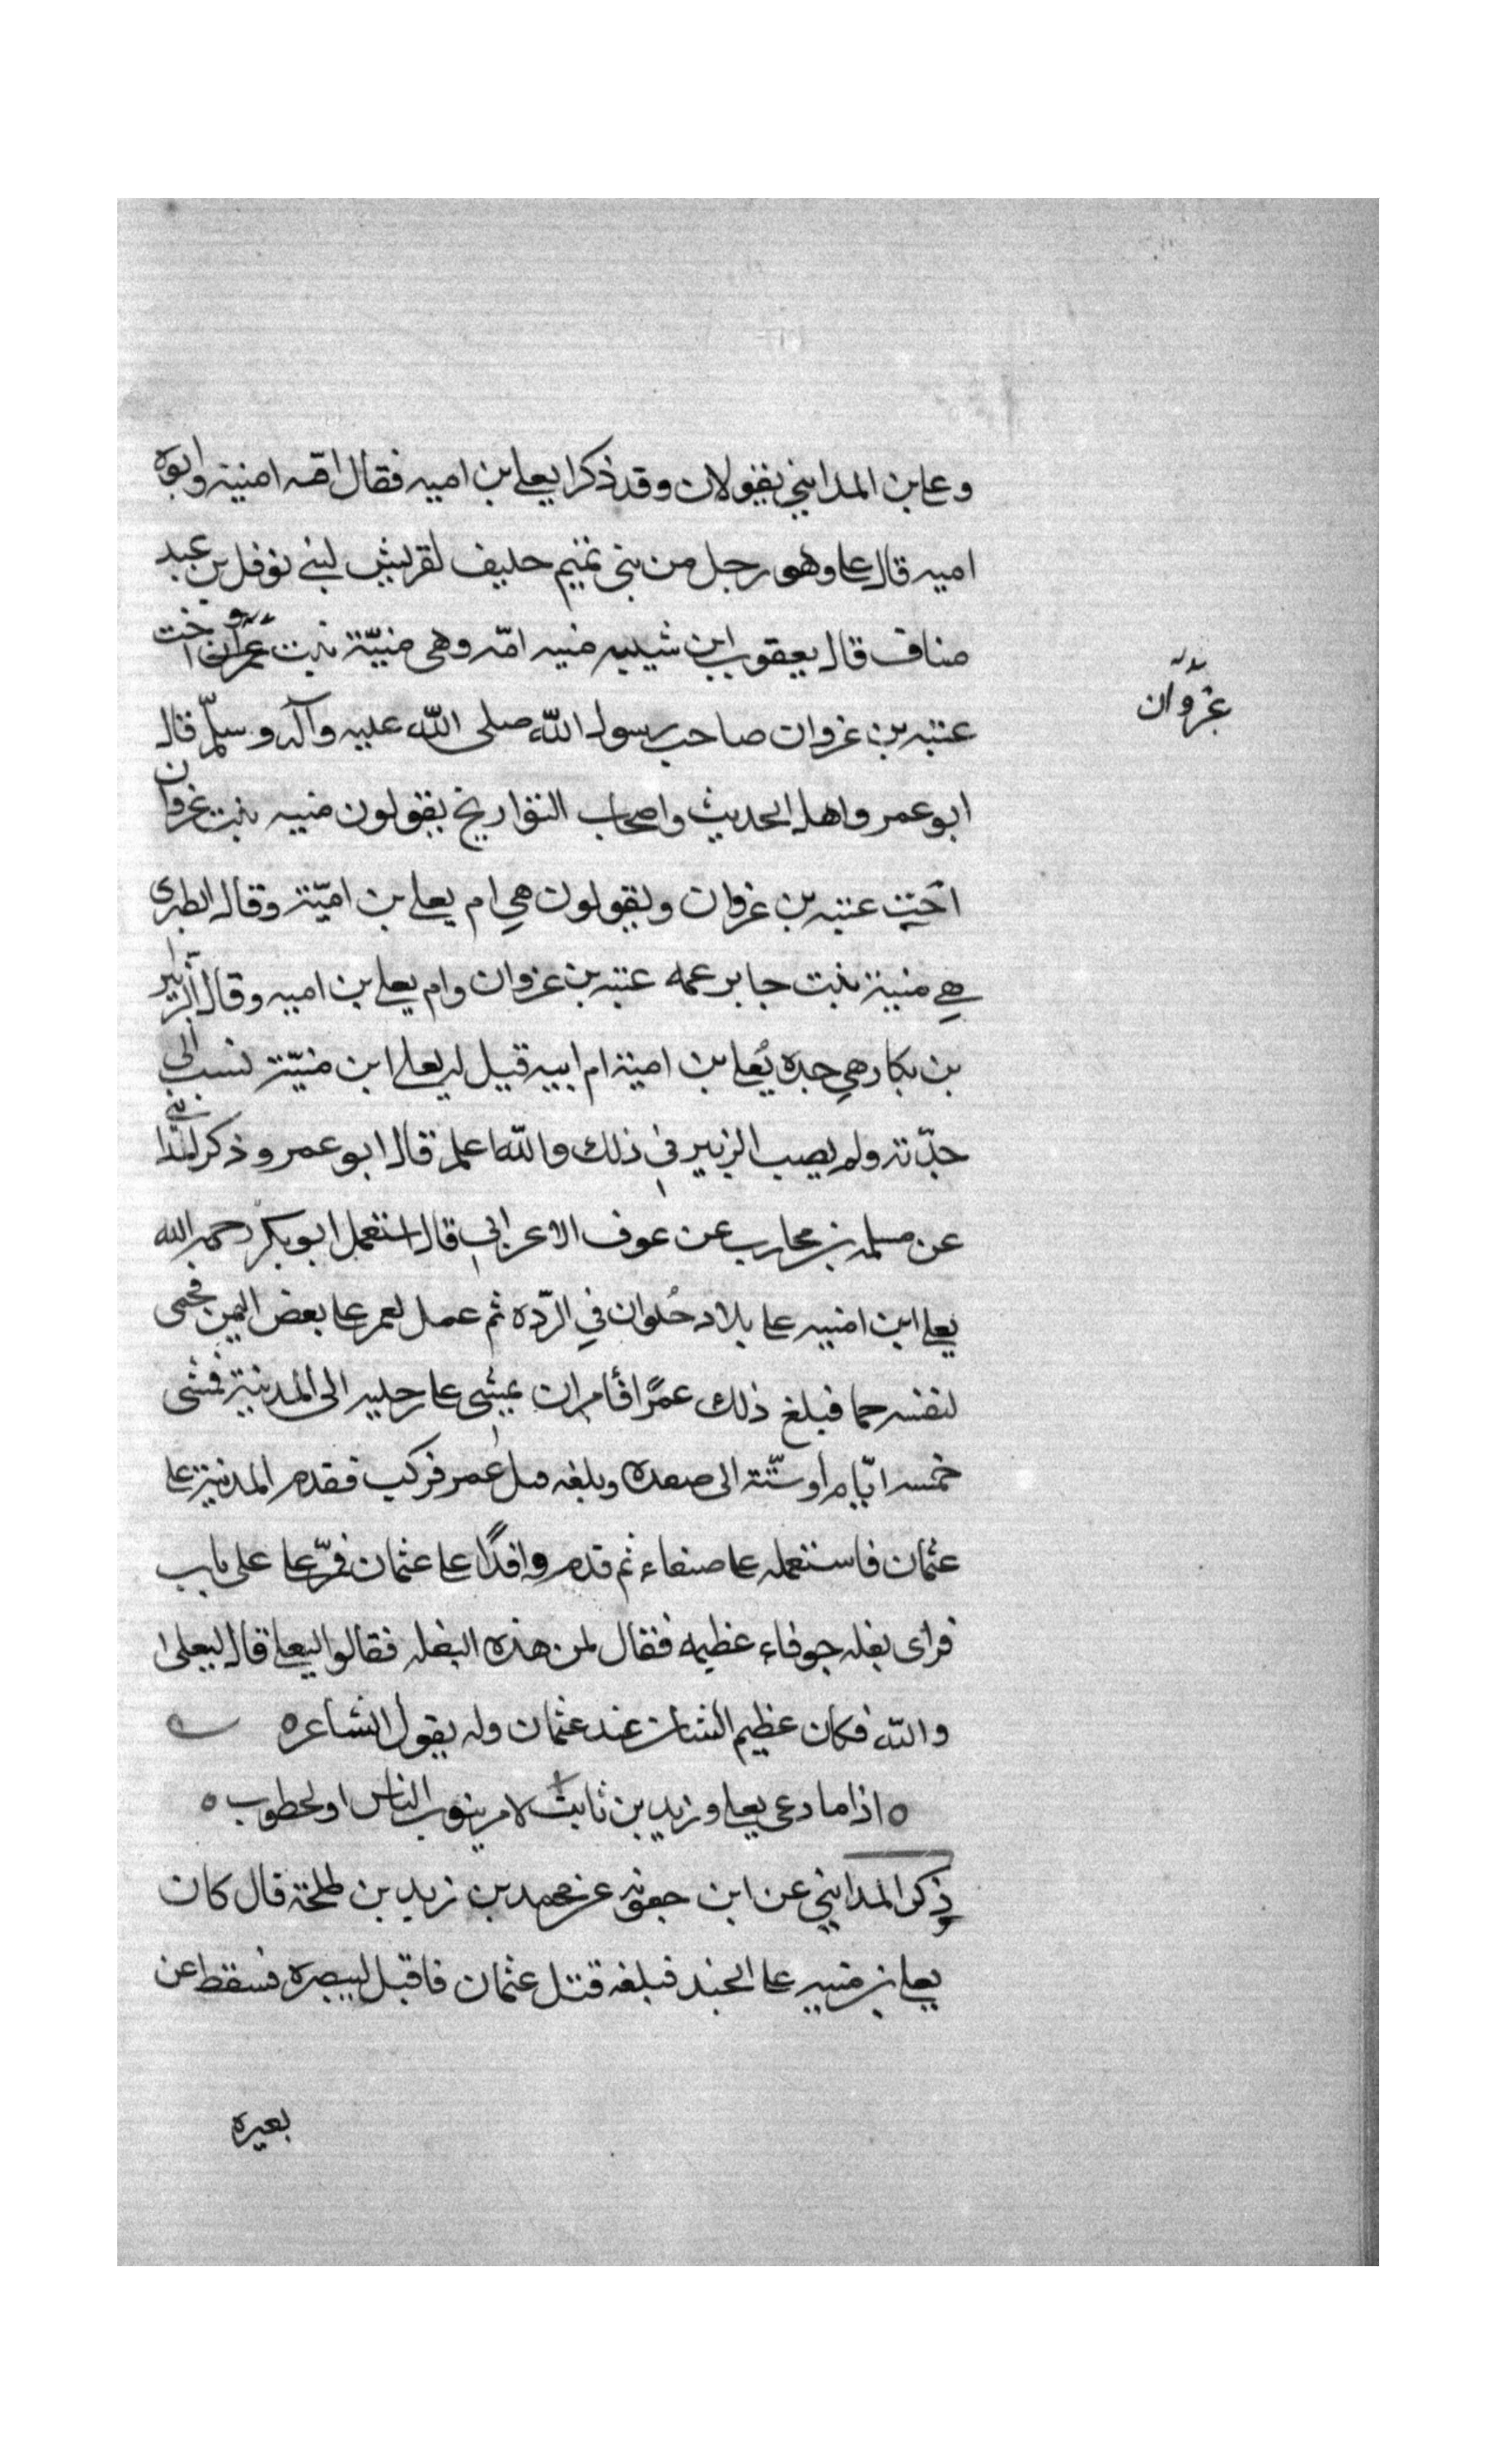 وعلى بن المدايني يقولان وقد ذكرا يعلى بن اميه فقال امه امنية وابوه
اميه قال على وهو رجل من بني تميم حليف لقريش لبني نوفل بن عبد
مناف قال يعقوب ابن شيبه منيه امّه وهى منيّة بنت اخت
غزوان
عتبه بن غزوان صاحب رسول الله صلى الله عليه وآله وسلّم قال
ابو عمر واهل الحديث واصحاب التواريخ يقولون منيه بنت غزوان
اخت عتبه بن غزوان ويقولون هي ام يعلى بن اميّة وقال الطبرى
هي منية بنت جابر عمه عتبه بن غزوان وام يعلى بن اميه وقال الزبير
بن بكار هي جده يُعلى بن امية ام ابيه قيل له يعلى ابن منيّة نسب الى
جدّته ولم يصب الزبير في ذلك والله اعلم قال ابو عمر وذكر المدايني
عن مسلمه بن محارب عن عوف الاعرابي قال استعمل ابو بكر رحمه الله
يعلى ابن اميه على بلاد حُلوان في الردّه ثم عمل لعمر على بعض اليمن فحمى
لنفسه حما فبلغ ذلك عمرًا فأمر ان يمشي على رجليه الى المدينة فمشى
خمسه ايّام او ستّة الى صعده وبلغه قتل عمر فركب فقدم المدينة على
عثمان فاستعمله على صنعاء ثم قدم وافدًا على عثمان فمرّ على على باب
فراى بغله جوفاء عظيمه فقال لمن هذه البغله فقالوا ليعلى قال ليعلى
والله فكان عظيم الشان عند عثمان وله يقول الشاعره
ه اذا ما دعى يعلى وزيد بن ثابت لامر ينوب الناس او لخطوب ه
وذكر المدايني عن ابن جعونه عن محمد بن زيد بن طلحة قال كان
يعلى بن منيه على الجند فبلغه قتل عثمان فاقبل ليبصره فسقط عن
بعيره